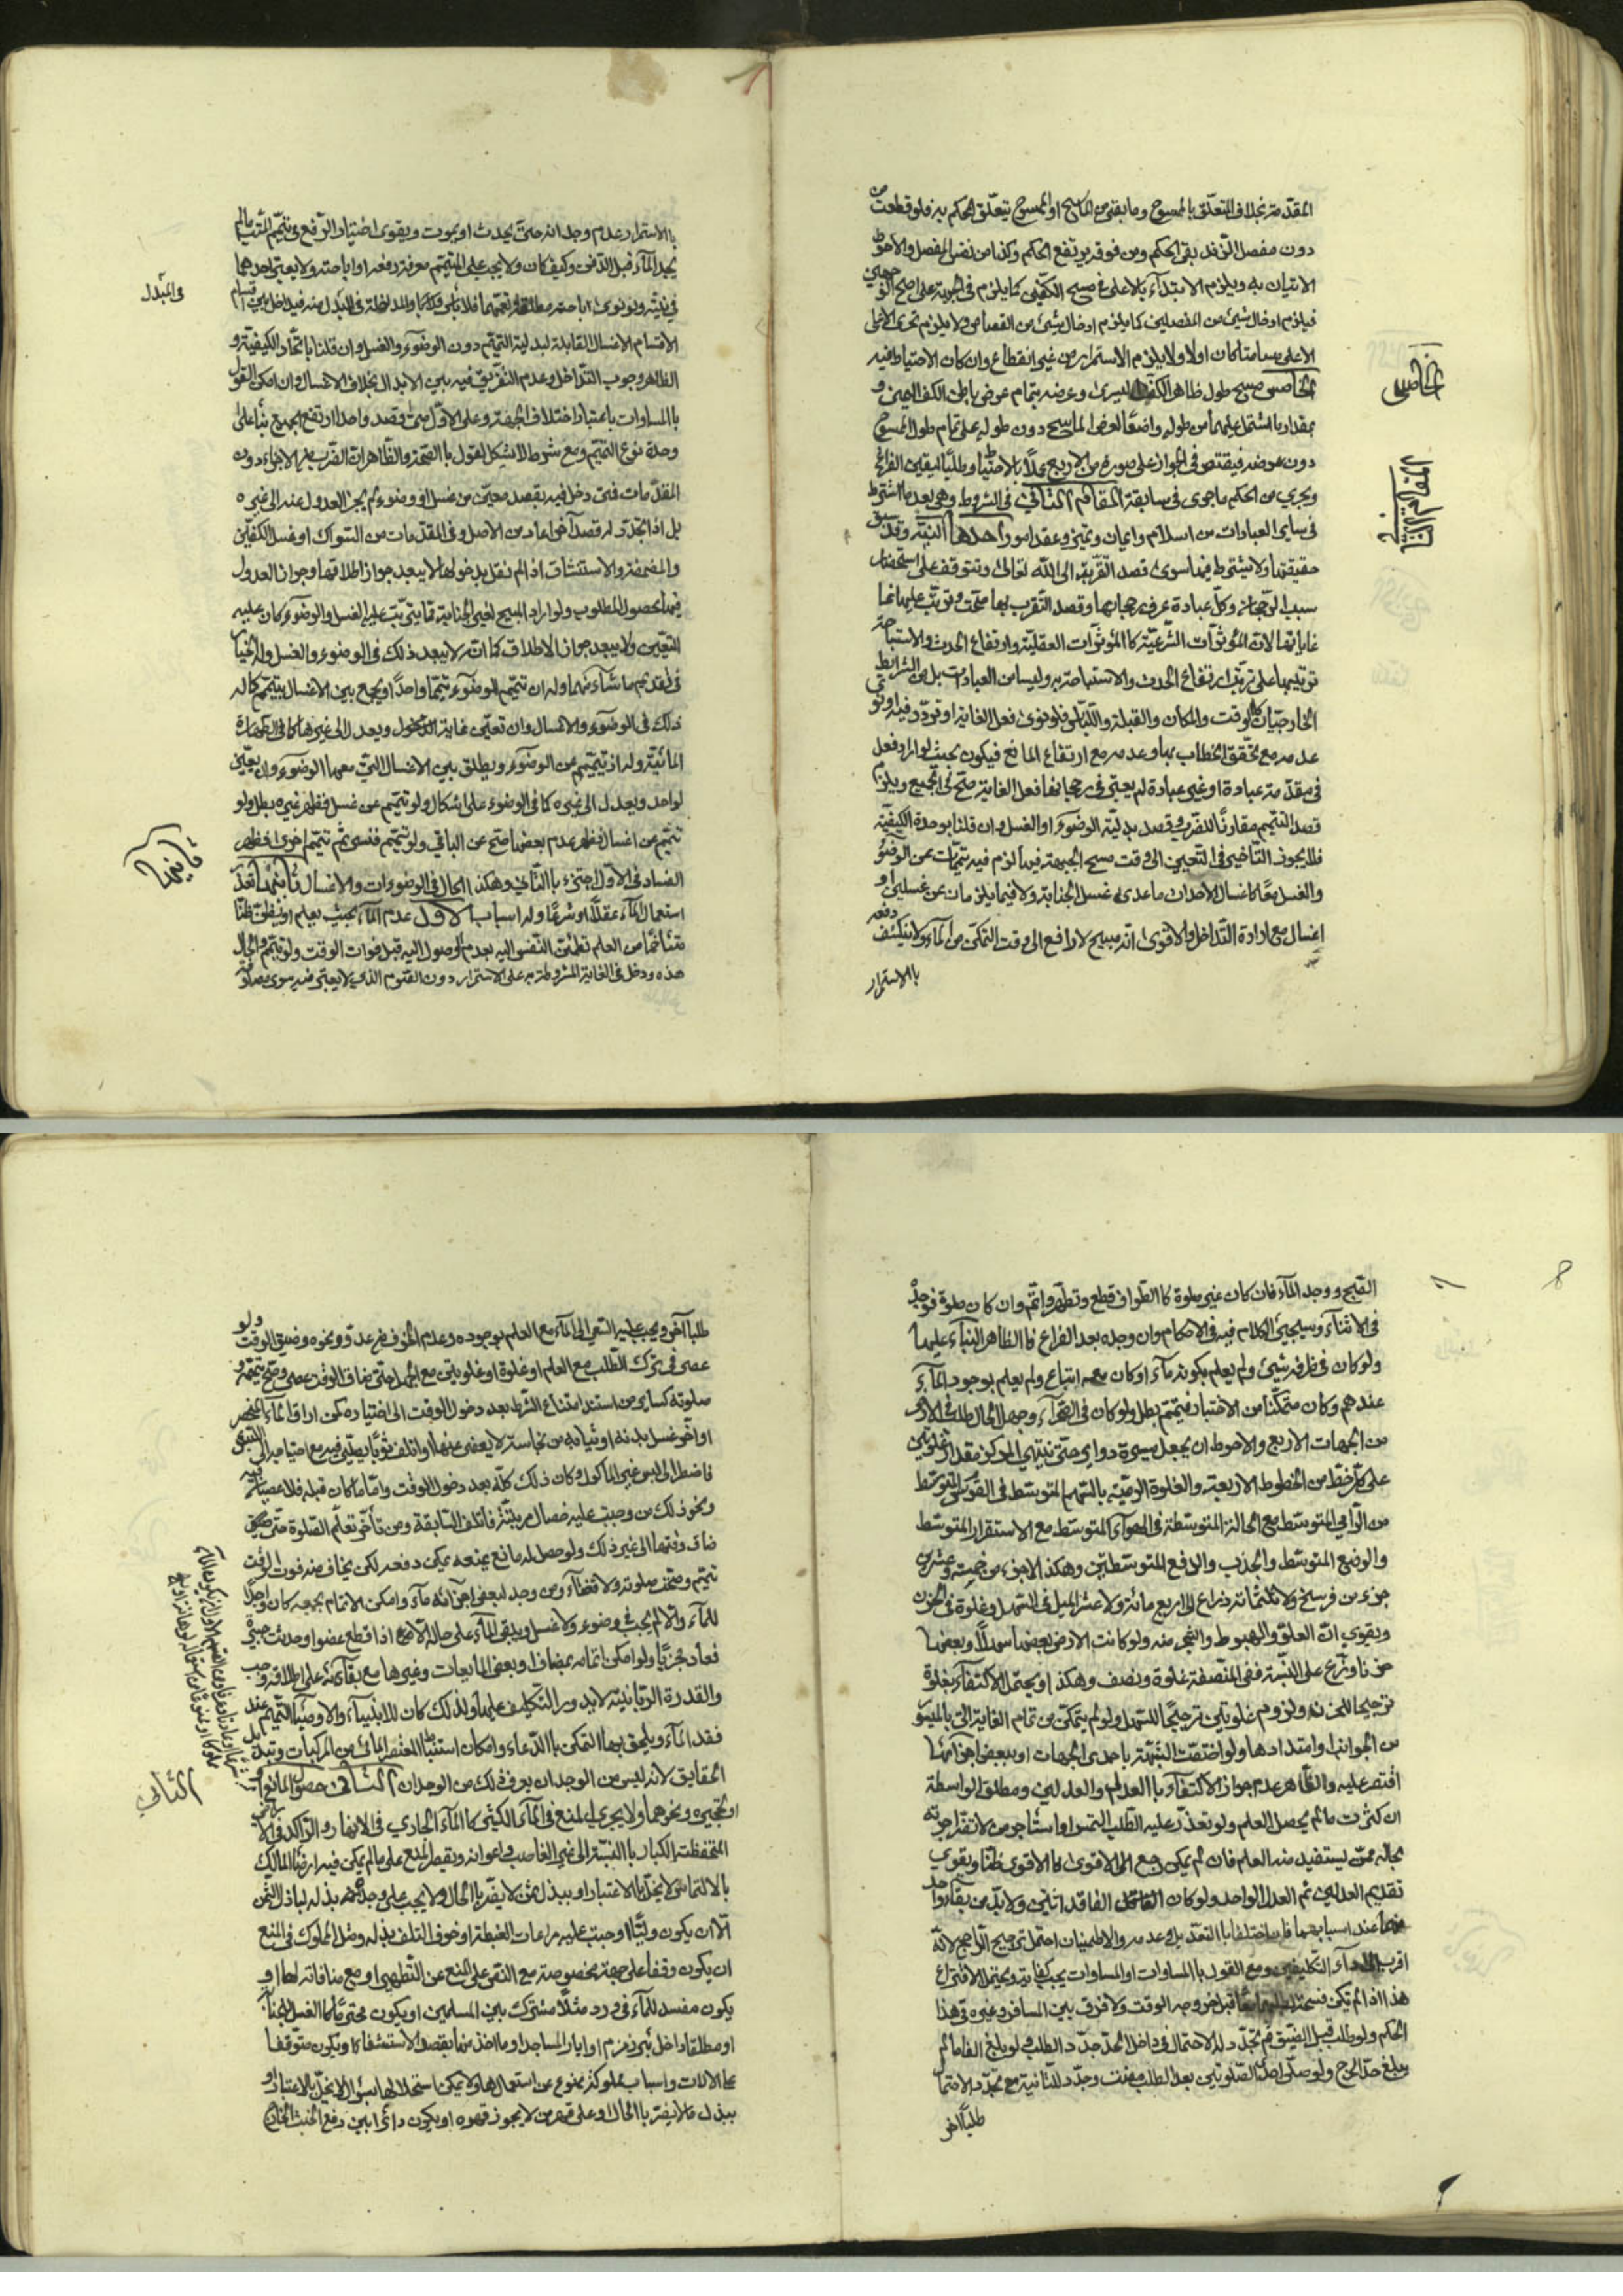 المقدمة بخلاف المتعلق بالممسوح وما بقي من الماسح او الممسوح يتعلق الحكم به فلو قطعت من
دون مفصل الزند بقى الحكم ومن فوقه يرتفع الحكم وكذا من نفس المفصل والاحوط
الاتيان به ويلزم الابتداء بالاعلى في مسح الكفين كما يلزم في الجبهة على اصح الوجهين
فيلزم ادخال شيئ من المفصلين كما يلزم ادخال شيئ من القصاص ولا يلزم تحرى الاعلى
الاعلى مسامتا كان اولا ولا يلزم الاستمرار من غير انقطاع وان كان الاحتياط فيه
الخامس مسح طول ظاهر الكف اليسرى وعرضه بتمام عرض باطن الكف اليمنى و
بمقدار ما اشتمل عليهما من طوله واضعا لعرض الماسح دون طوله على تمام طول الممسوح
دون عرضه فيقتصر في الجواز على صورة من الاربع عملا بالاحتياط وطلبا لليقين الفراغ
ويجري من الحكم ما جرى في سابقه المقام الثاني في الشروط وهي بعد ما اشترط
في ساير العبادات من اسلام وايمان وتميز وعقد امور احدها النية وقد سبق
حقيقتها ولا يشترط فيها سوى قصد القربة الى الله تعالى وتتوقف على استحضار
سبب الرجحان وكل عبادة عرف رجحانها وقصد التقرب بها صحت وترتب عليها
غاياتها لان المؤثرات الشرعية كالمؤثرات العقلية وارتفاع الحدث والاستباحة
ترتيبها على ترتب ارتفاع الحدث والاستباحة به وليسا من العبادات بل من الشرايط
الخارجيات كالوقت والمكان والقبلة واللباس فلو نوى فعل الغاية او تردد فيه او نوى
عدمه مع تحقق الخطاب بها وعدمه مع ارتفاع المانع فيكون بحيث لو اراد فعل
في مقدمة عبادة او غير عبادة لم يعتبر في رجحانها فعل الغاية صح في الجميع ويلزم
قصد التيمم مقارنا للضرب وقصد بدلية الوضوء او الغسل وان قلنا بوحدة الكيفية
فلا يجوز التأخير في التعيين الى وقت مسح الجبهة فيما لزم فيه تيممات عن الوضوء
والغسل معا كاغسال الاحداث ما عدى غسل الجنابة ولا فيما يلزمان عن غسلين او
اغسال مع ارادة التداخل والاقوى انه مبيح لا رافع الى وقت التمكن من الماء ولا ينكشف دفعه
بالاستمرار
الخامس
المقام الثاني
بالاستمرار عدم وجدانه حتى يحدث او يموت ويقوى اختيار الرفع في تيمم الميت ما لم
يجد الماء قبل الدفن وكيف كان ولا يجب على المتيمم معرفة رفعه او اباحته ولا يعتبر احدهما
في نيته ولو نوى اباحته مطلقا فلا بأس والمداخلة في المبدل منه فيداخل بين اقسام
الاقسام الاغسال القابلة لبدلية التيمم دون الوضوء والغسل وان قلنا باتحاد الكيفية و
الظاهر وجوب التداخل وعدم التفريق فيه بين الابدال بخلاف الاغسال وان امكن القول
بالمساوات باعتبار اختلاف الجهة وعلى الاول متى قصد واحدا ارتفع الجميع بناء على
وحدة نوع التيمم ومع شرط لا يشكل القول بالصحة والظاهر ان الضرب من الاجزاء دون
المقدمات فمتى دخل فيه بقصد معين من غسل او وضوء لم يجز العدول عنه الى غيره
بل اذا تجدد له قصد اخر اعاد من الاصل وفي المقدمات من السواك او غسل الكفين
والمضمضة والاستنشاق اذا لم نقل بدخولها لا يبعد جواز اطلاقها وجواز العدول
فيها لحصول المطلوب ولو اراد المبيح لغير الجنابة مما يترتب عليه الغسل والوضوء كان عليه
التعيين ولا يبعد جواز الاطلاق كما انه لا يبعد ذلك في الوضوء والغسل وله الخيار
في تقديم ما شاء منهما وله ان يتيمم للوضوء تيمما واحدا ويجمع بين الاغسال بتيمم كما له
ذلك في الوضوء والاغسال وان تعين غاية الدخول ويعدل الى غيرها كما في الطهارة
المائية وله ان يتيمم عن الوضوء ويطلق بين الاغسال التي معها الوضوء وان يعين
لواحد ويعدل الى غيره كما في الوضوء على اشكال ولو تيمم عن غسل فظهر غيره بطل ولو
تيمم عن اغسال فظهر عدم بعضها صح عن الباقي ولو تيمم فنسى ثم تيمم اخرى فظهر
الفساد في الاول اجتزء بالثاني وهكذا الحال في الوضوءات والاغسال ثانيها تعذر
استعمال الماء عقلا او شرعا وله اسباب الاول عدم الماء بحيث يعلم او يظن ظنا
متاخما من العلم تطمئن النفس اليه بعدم الوصول اليه قبل فوات الوقت ولو تيمم والحال
هذه ودخل في الغاية المشروطة به على الاستمرار دون الصوم الذي لا يعتبر فيه سوى مصادفة
في المبدل
ثانيها
القبح ووجد الماء فان كان غير صلوة كالطواف قطع وتطهر واتم وان كان صلوة فوجده
في الاثناء وسيجيئ الكلام فيه في الاحكام وان وجده بعد الفراغ فالظاهر البناء عليها
ولو كان في ظرفه شيئ ولم يعلم بكونه ماء او كان معه اتباع ولم يعلم بوجود الماء
عندهم وكان متمكنا من الاختبار فتيمم بطل ولو كان في الصحراء وجهل الحال طلب في الارض
من الجهات الاربع والاحوط ان يجعل مسيره دواير حتى تنتهي الى المركز مقدار غلوتين
على كل خط من الخطوط الاربعة والغلوة الرمية بالسهم المتوسط في القوس المتوسط
من الرامي المتوسط مع الحالة المتوسطة في الهواء المتوسط مع الاستقرار المتوسط
والوضع المتوسط والجذب والدفع المتوسطين وهكذا لا جزء من خمسة وعشرين
جزء من فرسخ ولا ثلثمائة ذراع الى اربع مائة ولا عشر الميل في السهل وغلوة في الحزن
ويقوي ان العلو والهبوط والشجر منه ولو كانت الارض بعضها سهلا وبعضها
حزنا وزع على النسبة ففي المنصفة غلوة ونصف وهكذا ويحتمل الاكتفاء بغلوة
ترجيحا للحزنه ولزوم غلوتين ترجيحا للسهل ولو لم يتمكن من تمام الغاية اتى بالميسور
من الجوانب وامتدادها ولو اختصت الشبهة باحدى الجهات او ببعض اجزائها
اقتصر عليه والظاهر عدم جواز الاكتفاء بالعدل والعدلين ومطلق الواسطة
ان كثرت ما لم يحصل العلم ولو تعذر عليه الطلب التمس او استأجر من لا تضر اجرته
بحاله ممن يستفيد منه العلم فان لم يمكن رجع الى الاقوى فالاقوى ظنا ويقوي
تقديم العدلين ثم العدل الواحد ولو كان الفاقد اثنين ولا بد من بقاء واحد
منهما عند اسبابهما فان اختلفا بالتعذر وعدمه والاطمينان احتمل ترجيح الراجح لانه
اقرب الى اداء التكليفين ومع القول بالمساوات او المساوات يجب كفاية ويحتمل الاقتراع
هذا اذا لم تكن قسمة قبل عروضه الوقت ولا فرق بين المسافر وغيره في هذا
الحكم ولو طلب قبل الضيق ثم تجدد له الاحتمال في داخل الحد جدد الطلب ولو بلغ الفا ما لم
يبلغ حد الحرج ولو صلى احدى الصلوتين بعد الطلب مضت وجدد للثانية مع تجدد الاحتمال
طلبا اخر
8
طلبا آخر ويجب عليه السعي الى الماء مع العلم بوجوده وعدم الخوف من عدو ونحوه وضيق الوقت ولو
عصى في ترك الطلب مع العلم او غلوة او غلوتين مع الجهل حتى ضاق الوقت عصى وصح تيممه و
صلوته كساير من استند امتناع الشرط بعد دخول الوقت الى اختياره كمن اراق الماء المنحصر
او اخر غسل بدنه او ثيابه من نجاسة لا يعفى عنها او اتلف ثوبا يصلي فيه مع احتياجه الى
فاضطر الى لبس غير الماكول وكان ذلك كله بعد دخول الوقت واما ما كان قبله فلا عصيان فيه
ونحو ذلك من وجبت عليه خصال مرتبة فاتلف السابقة ومن تأخر تعلم الصلوة حتى
ضاق وقتها الى غير ذلك ولو حصل له مانع يمنعه يمكن دفعه لكن يخاف منه فوت الوقت
تيمم وصحت صلوته ولا قضاء ومن وجد لبعض اجزائه ماء وامكن الاتمام بجمعه كان واجدا
للماء والا لم يجب وضوء ولا غسل ويبقى الماء على حاله الا مع اذا قطع عضوا
فعاد مجزيا ولو امكن اتمامه بمضاف او بعض المايعات وغيرها مع بقائه على اطلاقه وجب
والقدرة الربانية لا يدور التكليف عليها ولذلك كان للانبياء والاوصياء التيمم عند
فقد الماء ويلحق بها التمكن بالدعاء وامكان استنباط العنصر المائي من المركبات وتبديل
الحقايق لانه ليس من الوجدان بعرف ذلك من الوجدان الثاني حصول المانع
او تحجيره ونحوهما ولا يجري المنع في الماء الكثير كالماء الجاري في الانهار والراكد في
بالنسبة الى غير الغاصب واعوانه ويقيد المنع على ما لم يمكن فيه ارضا المالك
بالالتماس لا يخل بالاعتبار او ببذل ثمن لا يضر بالحال ولا يجب على وجد بذله لباذل الثمن
الا ان يكون وليا اوجبت عليه مراعات الغبطة او خوف التلف بذله ومثل المملوك في المنع
ان يكون وقفا على جهة مخصوصة مع النص على المنع عن التطهير او مع منافاته لها او
يكون مفسد للماء في ورد مثلا مشترك بين المسلمين او يكون محترما كالغسل بالجنابة
او مطلقا داخل بئر زمزم او ابار المساجد او ما اخذ منها بقصد الاستشفاء او يكون متوقفا
على الالات واسباب مملوكة ممنوع من استعمالها ولا يمكن استحلالها بسؤال لا يخل بالاعتبار او
ببذل ما لا يضر بالحال او على قهر من لا يجوز قهره او يكون دائرا بين رفع الخبث
الثاني